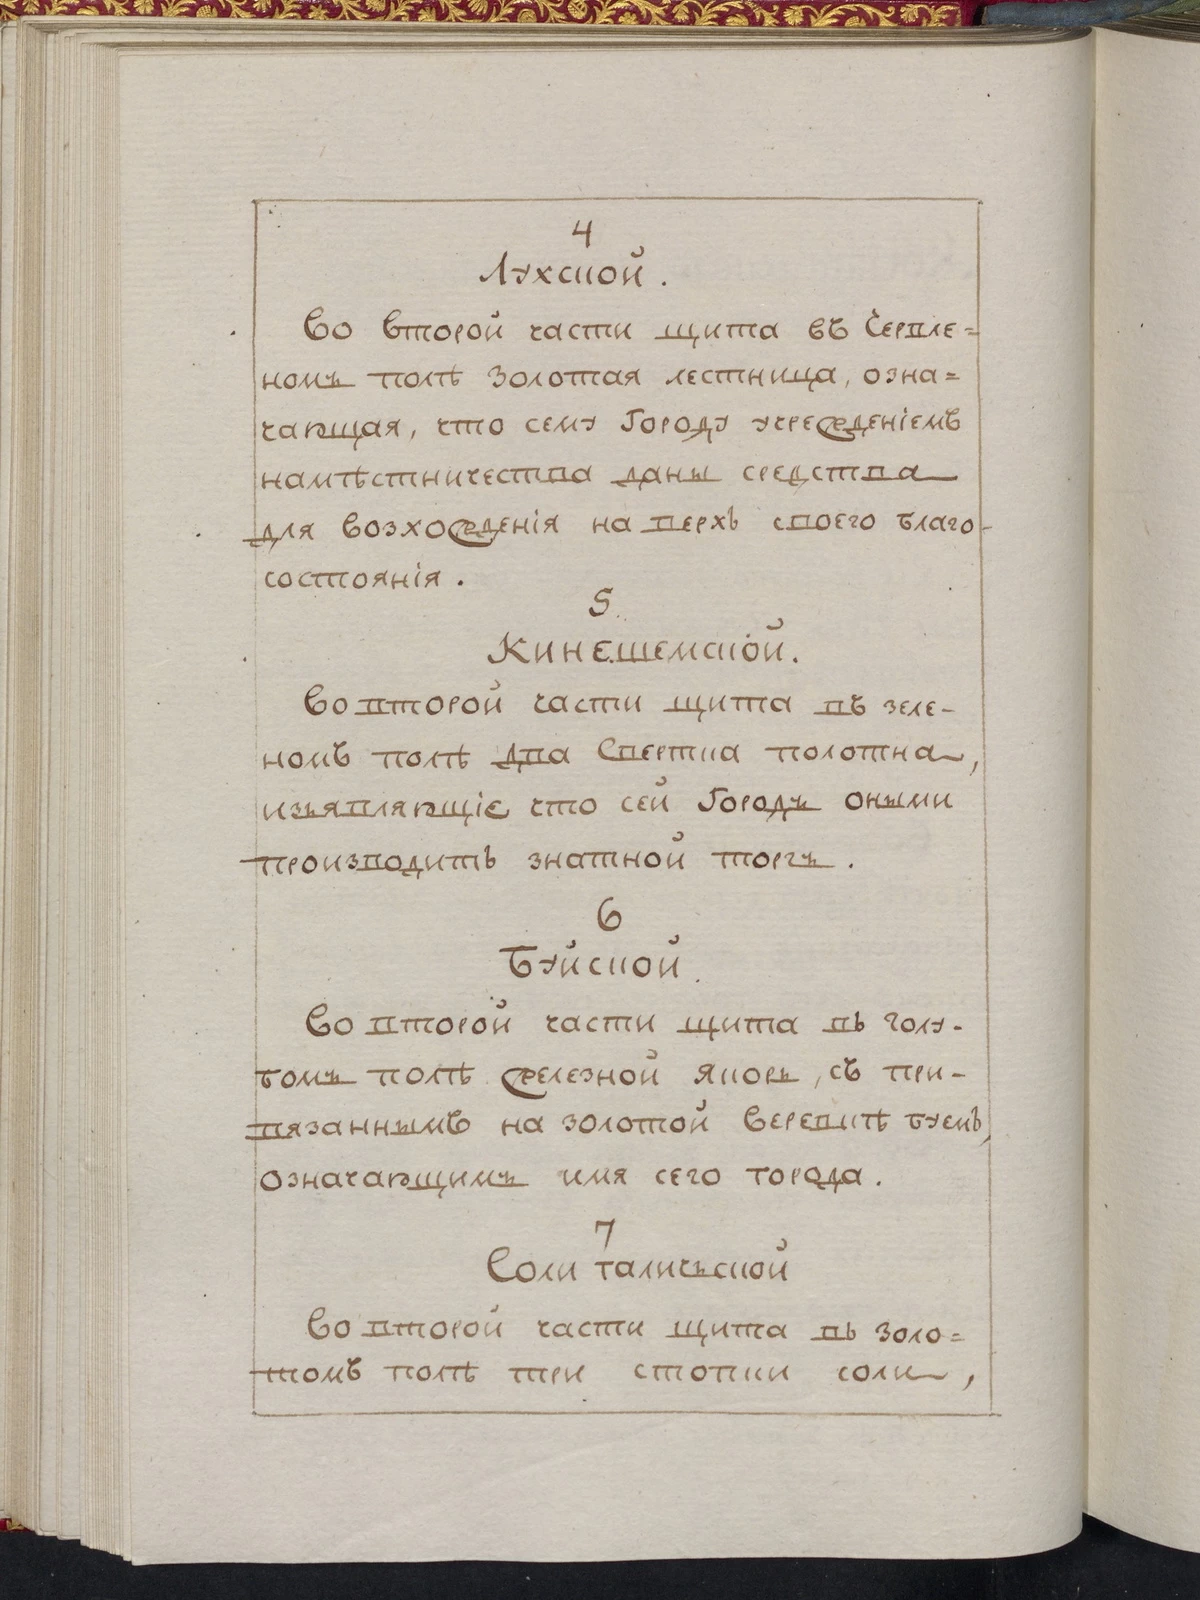 4
Лухской.
Во второй части щита въ Червле=
номъ полѣ Золотая лестница, озна=
чающая, что сему Городу учрежденіемъ
намѣстничества даны средства
для возхожденія на верхъ своего благо-
состоянія.
5
Кинешемской.
Во второй части щита въ зеле-
номъ полѣ два Свертка полотна,
изъявляющіе что сей Городъ оными
производитъ знатной торгъ.
6
Буйской.
Во второй части щита въ голу-
бомъ полѣ железной Якорь, съ при-
вязаннымъ на золотой веревкѣ буемъ,
означающимъ имя сего города.
7
Соли галичьской
Во второй части щита въ золо=
томъ полѣ три стопки соли,